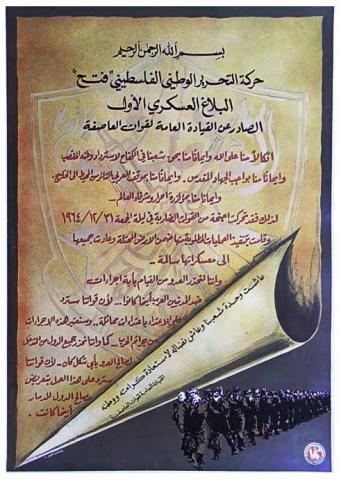 بسم الله الرحمن الرحيم
حركة التحرير الوطني الفلسطيني "فتح"
البلاغ العسكري الأول
الصادر عن القيادة العامة لقوات العاصفة
اتكالا منا على الله وإيمانا منا بحق شعبنا في الكفاح لاسترداد وطنه المغتصب
وإيمانا منا بواجب الجهاد المقدس.. وإيمانا منا بموقف العربي الثائر من المحيط إلى الخليج..
وإيمانا منا بمؤازرة أحرار وشرفاء العالم..
لذلك فقد تحركت أجنحة من القوات الضاربة في ليلة الجمعة ٣١/١٢/١٩٦٤
وقامت بتنفيذ العمليات المطلوبة منها ضمن الأرض المحتلة وعادت جميعها
إلى معسكراتها سالمة..
وإننا لنحذر العدو من القيام بأية إجراءات
ضد المدنيين العرب أينما كانوا.. لأن قواتنا سترد
على الاعتداء باعتداءات مماثلة.. وستعتبر هذه الإجراءات
من جرائم الحرب.. كما وإننا نحذر جميع الدول من التدخل
لصالح العدو بأي شكل كان.. لأن قواتنا
سترد على هذا العمل بتعريض
مصالح الدول للدمار
أينما كانت..
عاشت وحدة شعبنا وعاش نضاله لاستعادة كرامته ووطنه
القيادة العامة لقوات العاصفة